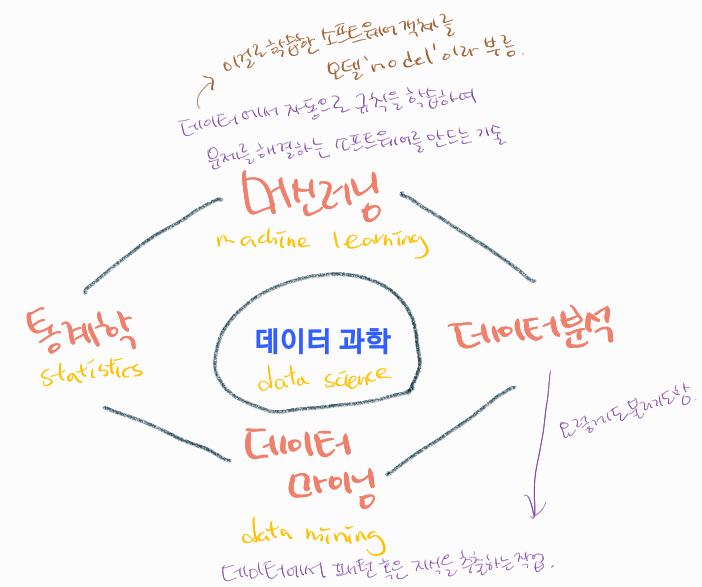 이걸로 학습한 소프트웨어 객체를
모델'model'이라 부름.
데이터에서 자동으로 규칙을 학습하여
문제를 해결하는 소프트웨어를 만드는 기술
머신러닝
machine learning
통계학
statistics
데이터 과학
data science
데이터분석
데이터
마이닝
data mining
데이터에서 패턴 혹은 지식을 추출하는 작업.